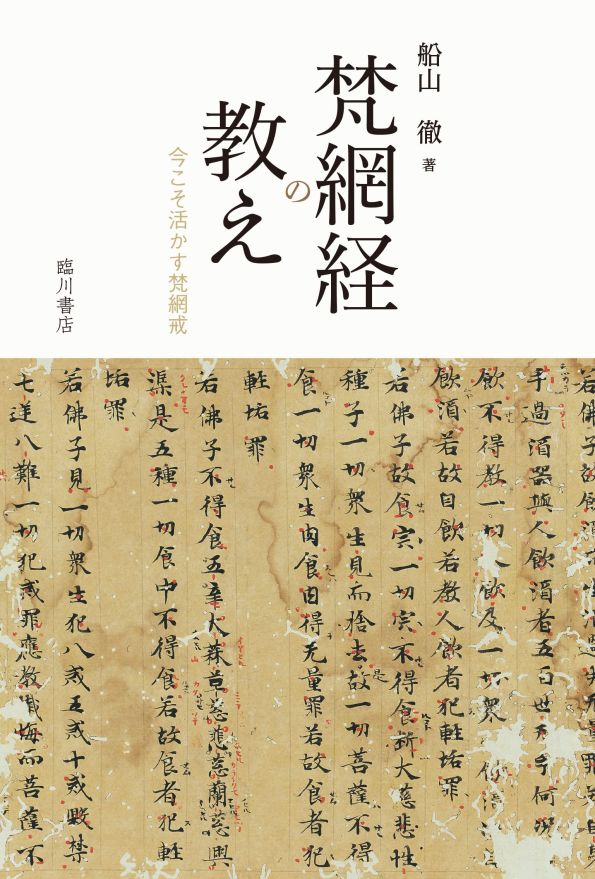 船山 徹 著
梵網経の
教え
今こそ活かす梵網戒
臨川書店
若佛子故飲 生酒過失无量罪
手過酒器與人飲酒者五百世无手何況
飲不得教一切人飲及一切衆
飲酒若故自飲若教人飲者犯軽垢罪
若佛子故食宍一切宍不得食断大慈悲性
種子一切衆生見而捨去故一切菩薩不得
食一切衆生肉食肉得无量罪若故食者犯
軽垢罪
若佛子不得食五辛大蒜革慈悲慈蘭慈興
渠是五種一切食中不得食若故食者犯軽
垢罪
若佛子見一切衆生犯八戒五戒十戒毀禁
七逆八難一切犯戒罪應教懺悔而菩薩不